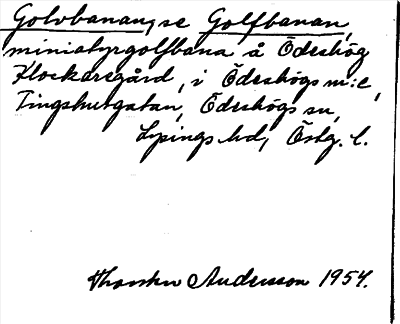 Golvbanan, se Golfbanan,
miniatyrgolfbana å Ödeshög
Klockaregård, i Ödeshögs m:e,
Tingshusgatan, Ödeshögs sn,
Lysings hd, Östg. l.
Thorsten Andersson 1954.